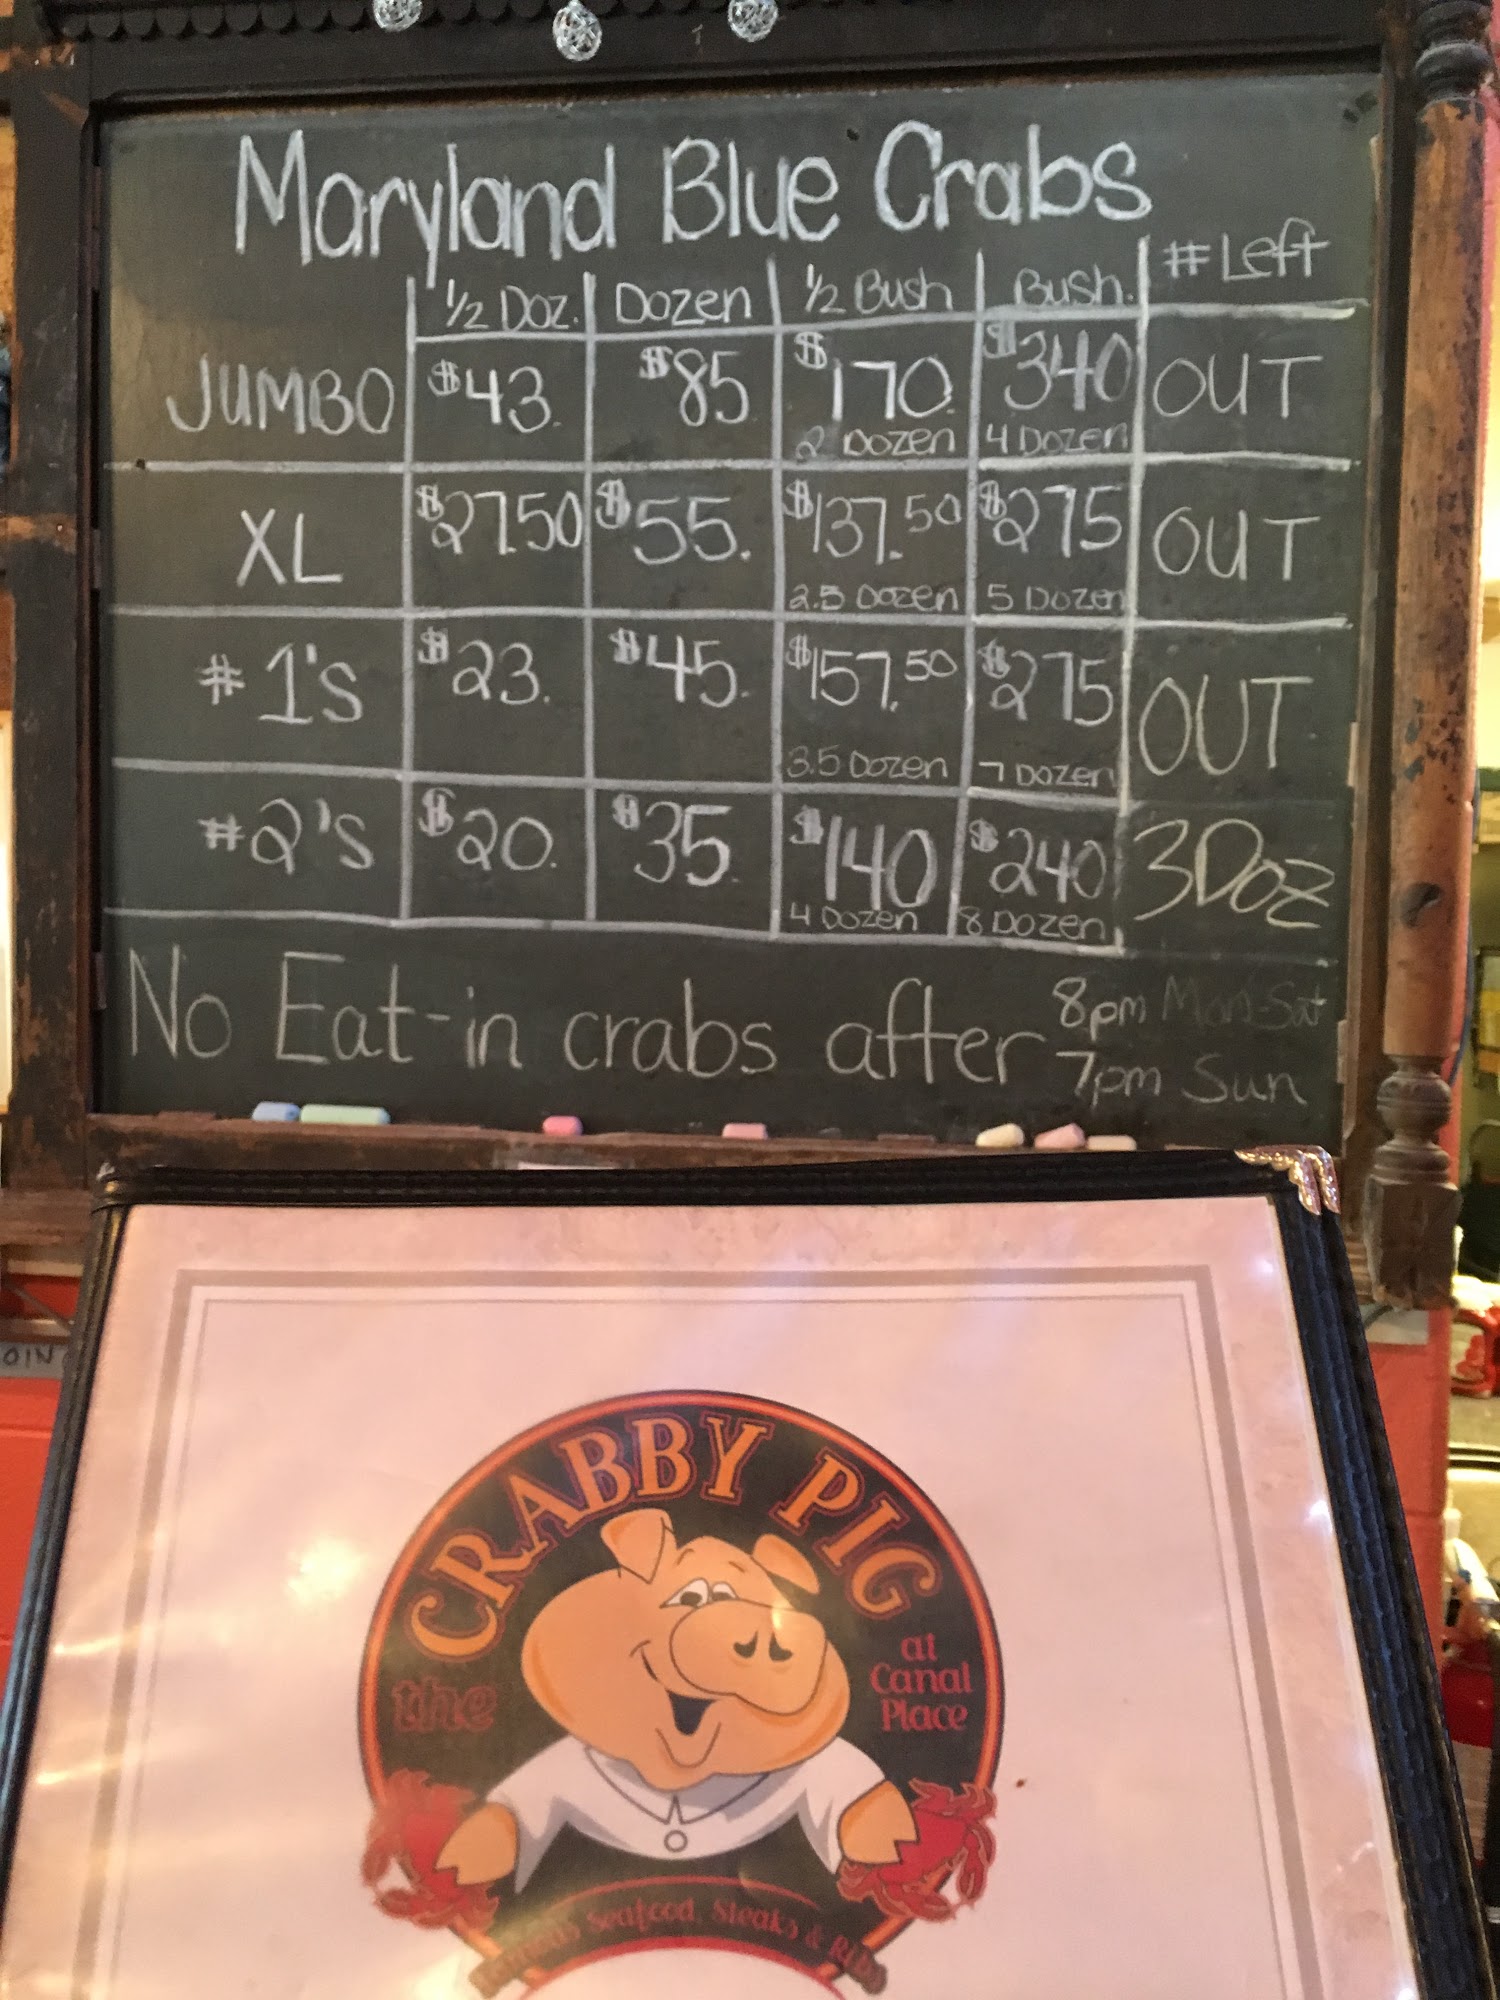 Maryland Blue Crabs
½ Doz. Dozen ½ Bush Bush. # Left
JUMBO $43. $85 $170. 2 Dozen $340 4 Dozen OUT
XL $27.50 $55. $137.50 2.5 Dozen $275 5 Dozen OUT
# 1's $23. $45. $157.50 3.5 Dozen $275 7 Dozen OUT
#2's $20. $35 $140 4 Dozen $240 8 Dozen 3Doz
No Eat-in crabs after 8pm Mon-Sat
7pm Sun
the CRABBY PIG
at
Canal
Place
Seafood, Steaks & Ribs